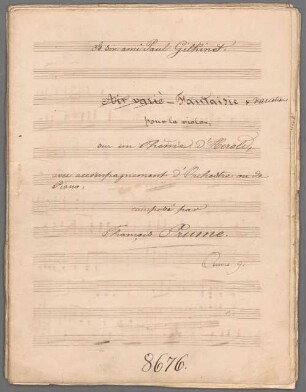 A son ami Paul Gilkinet.
Air varié - Fantaisie &
pour le violon,
sur un Thême d'Herold,
avec accompagnement d'Orchestre ou de
Piano,
composée par
François Prume.
Oeuvre 9.
8676.